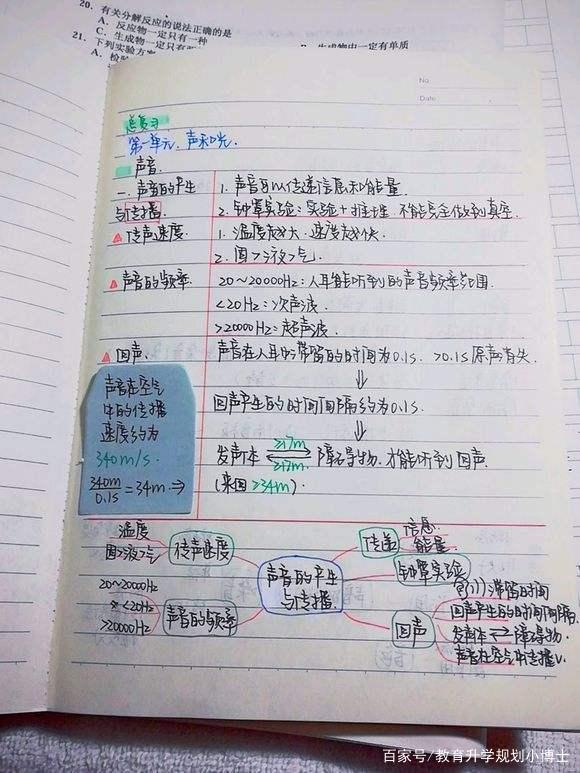 20. 有关分解反应的说法正确的是
A. 反应物一定只有一种
B. 生成物中一定有单质
C. 生成物一定只有
21. 下列实验方案
A. 检验
No.
Date.
总复习
第一单元. 声和光.
声音.
一. 声音的产生与传播.
1. 声音可以传递信息和能量.
2. 钟罩实验: 实验+推理 不能完全做到真空.
传声速度.
1. 温度越大. 速度越快.
2. 固>液>气.
声音的频率.
20~20000Hz: 人耳能听到的声音频率范围.
<20Hz: 次声波.
>20000Hz: 超声波.
回声.
声音在人耳中滞留的时间为0.1s. >0.1s 原声消失.
⇓
回声产生的时间间隔约为0.1s.
⇓
发声体 ≥17m ≥17m 障碍物. 才能听到回声.
(来回≥34m).
声音在空气
中的传播
速度约为
340m/s.
340m/0.1s=34m ⇒
温度
固>液>气
传声速度
20~20000Hz
<20Hz
>20000Hz
声音的频率
声音的产生
与传播.
传递
信息
能量.
钟罩实验
回声
滞留时间
回声产生的时间间隔.
发声体 ⇌ 障碍物.
声音在空气中传播v.
百家号/教育升学规划小博士